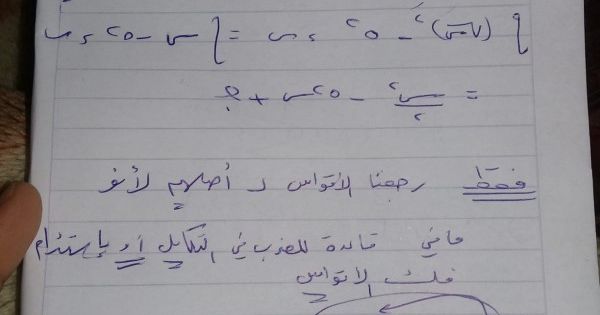 ∫ (√س)² - ٥² ءس = ∫ س - ٥² ءس
= س²/٢ - ٥²س + جـ
فقط رجعنا الأقواس لـ أصلهم لأنو
مافي قاعدة للضرب في التكامل أو بإستخدام
فك الأقواس